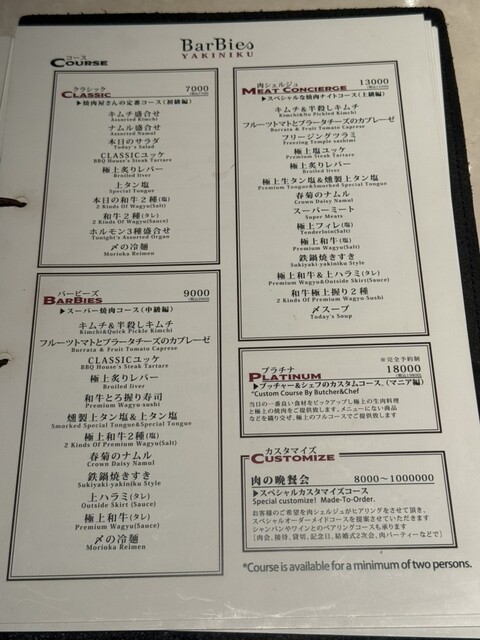 BarBies
YAKINIKU
コース
COURSE
クラシック
CLASSIC 7000
▶焼肉屋さんの定番コース(初級編)
キムチ盛合せ
Assorted Kimchi
ナムル盛合せ
Assorted Namul
本日のサラダ
Today's Salad
CLASSICユッケ
BBQ House's Steak Tartare
極上炙りレバー
Broiled liver
上タン塩
Special Tongue
本日の和牛2種(塩)
2 Kinds Of Wagyu(Salt)
和牛2種(タレ)
2 Kinds Of Wagyu(Sauce)
ホルモン3種盛合せ
Tonight's Assorted Organ
〆の冷麺
Morioka Reimen
バービーズ
BARBIES 9000
▶スーパー焼肉コース(中級編)
キムチ&半殺しキムチ
Kimchi&Quick Pickle Kimchi
フルーツトマトとブラータチーズのカプレーゼ
Burrata & Fruit Tomato Caprese
CLASSICユッケ
BBQ House's Steak Tartare
極上炙りレバー
Broiled liver
和牛とろ握り寿司
Premium Wagyu-sushi
燻製上タン塩&上タン塩
Smorked Special Tongue&Special Tongue
極上和牛2種(塩)
2 Kinds Of Premium Wagyu(Salt)
春菊のナムル
Crown Daisy Namul
鉄鍋焼きすき
Sukiyaki-yakiniku Style
上ハラミ(タレ)
Outside Skirt (Sauce)
極上和牛(タレ)
Premium Wagyu(Sauce)
〆の冷麺
Morioka Reimen
肉シェルジュ
MEAT CONCIERGE 13000
▶スペシャルな焼肉ナイトコース(上級編)
キムチ&半殺しキムチ
Kimchi&Su Pickled Kimchi
フルーツトマトとブラータチーズのカプレーゼ
Burrata & Fruit Tomato Caprese
フリージングツラミ
Freezing Temple sashimi
極上塩ユッケ
Premium Steak Tartare
極上炙りレバー
Broiled liver
極上生タン塩&燻製上タン塩
Premium Tongue&Smorked Special Tongue
春菊のナムル
Crown Daisy Namul
スーパーミート
Super Meats
極上フィレ(塩)
Tenderloin(Salt)
極上和牛(塩)
Premium Wagyu(Salt)
鉄鍋焼きすき
Sukiyaki-yakiniku Style
極上和牛&上ハラミ(タレ)
Premium Wagyu&Outside Skirt(Sauce)
和牛極上握り2種
2 Kinds Of Premium Wagyu-Sushi
〆スープ
Today's Soup
※完全予約制
プラチナ
PLATINUM 18000
▶ブッチャー&シェフのカスタムコース、(マニア編)
"Custom Course By Butcher&Chef
当日の一番良い食材をピックアップし極上の生肉料理
と極上の焼肉をご提供致します。メニューにない商品
などを織り交ぜ、極上のフルコースでご提供致します。
カスタマイズ
CUSTOMIZE
肉の晩餐会 8000〜1000000
▶スペシャルカスタマイズコース
Special customize! Made-To-Order.
お客様のご希望を肉シェルジュがヒアリングをさせて頂き、
スペシャルオーダーメイドコースを提案させていただきます
シャンパンやワインとのペアリングコースも承ります
[肉会、接待、貸切、記念日、結婚式2次会、肉パーティーなどで]
*Course is available for a minimum of two persons.